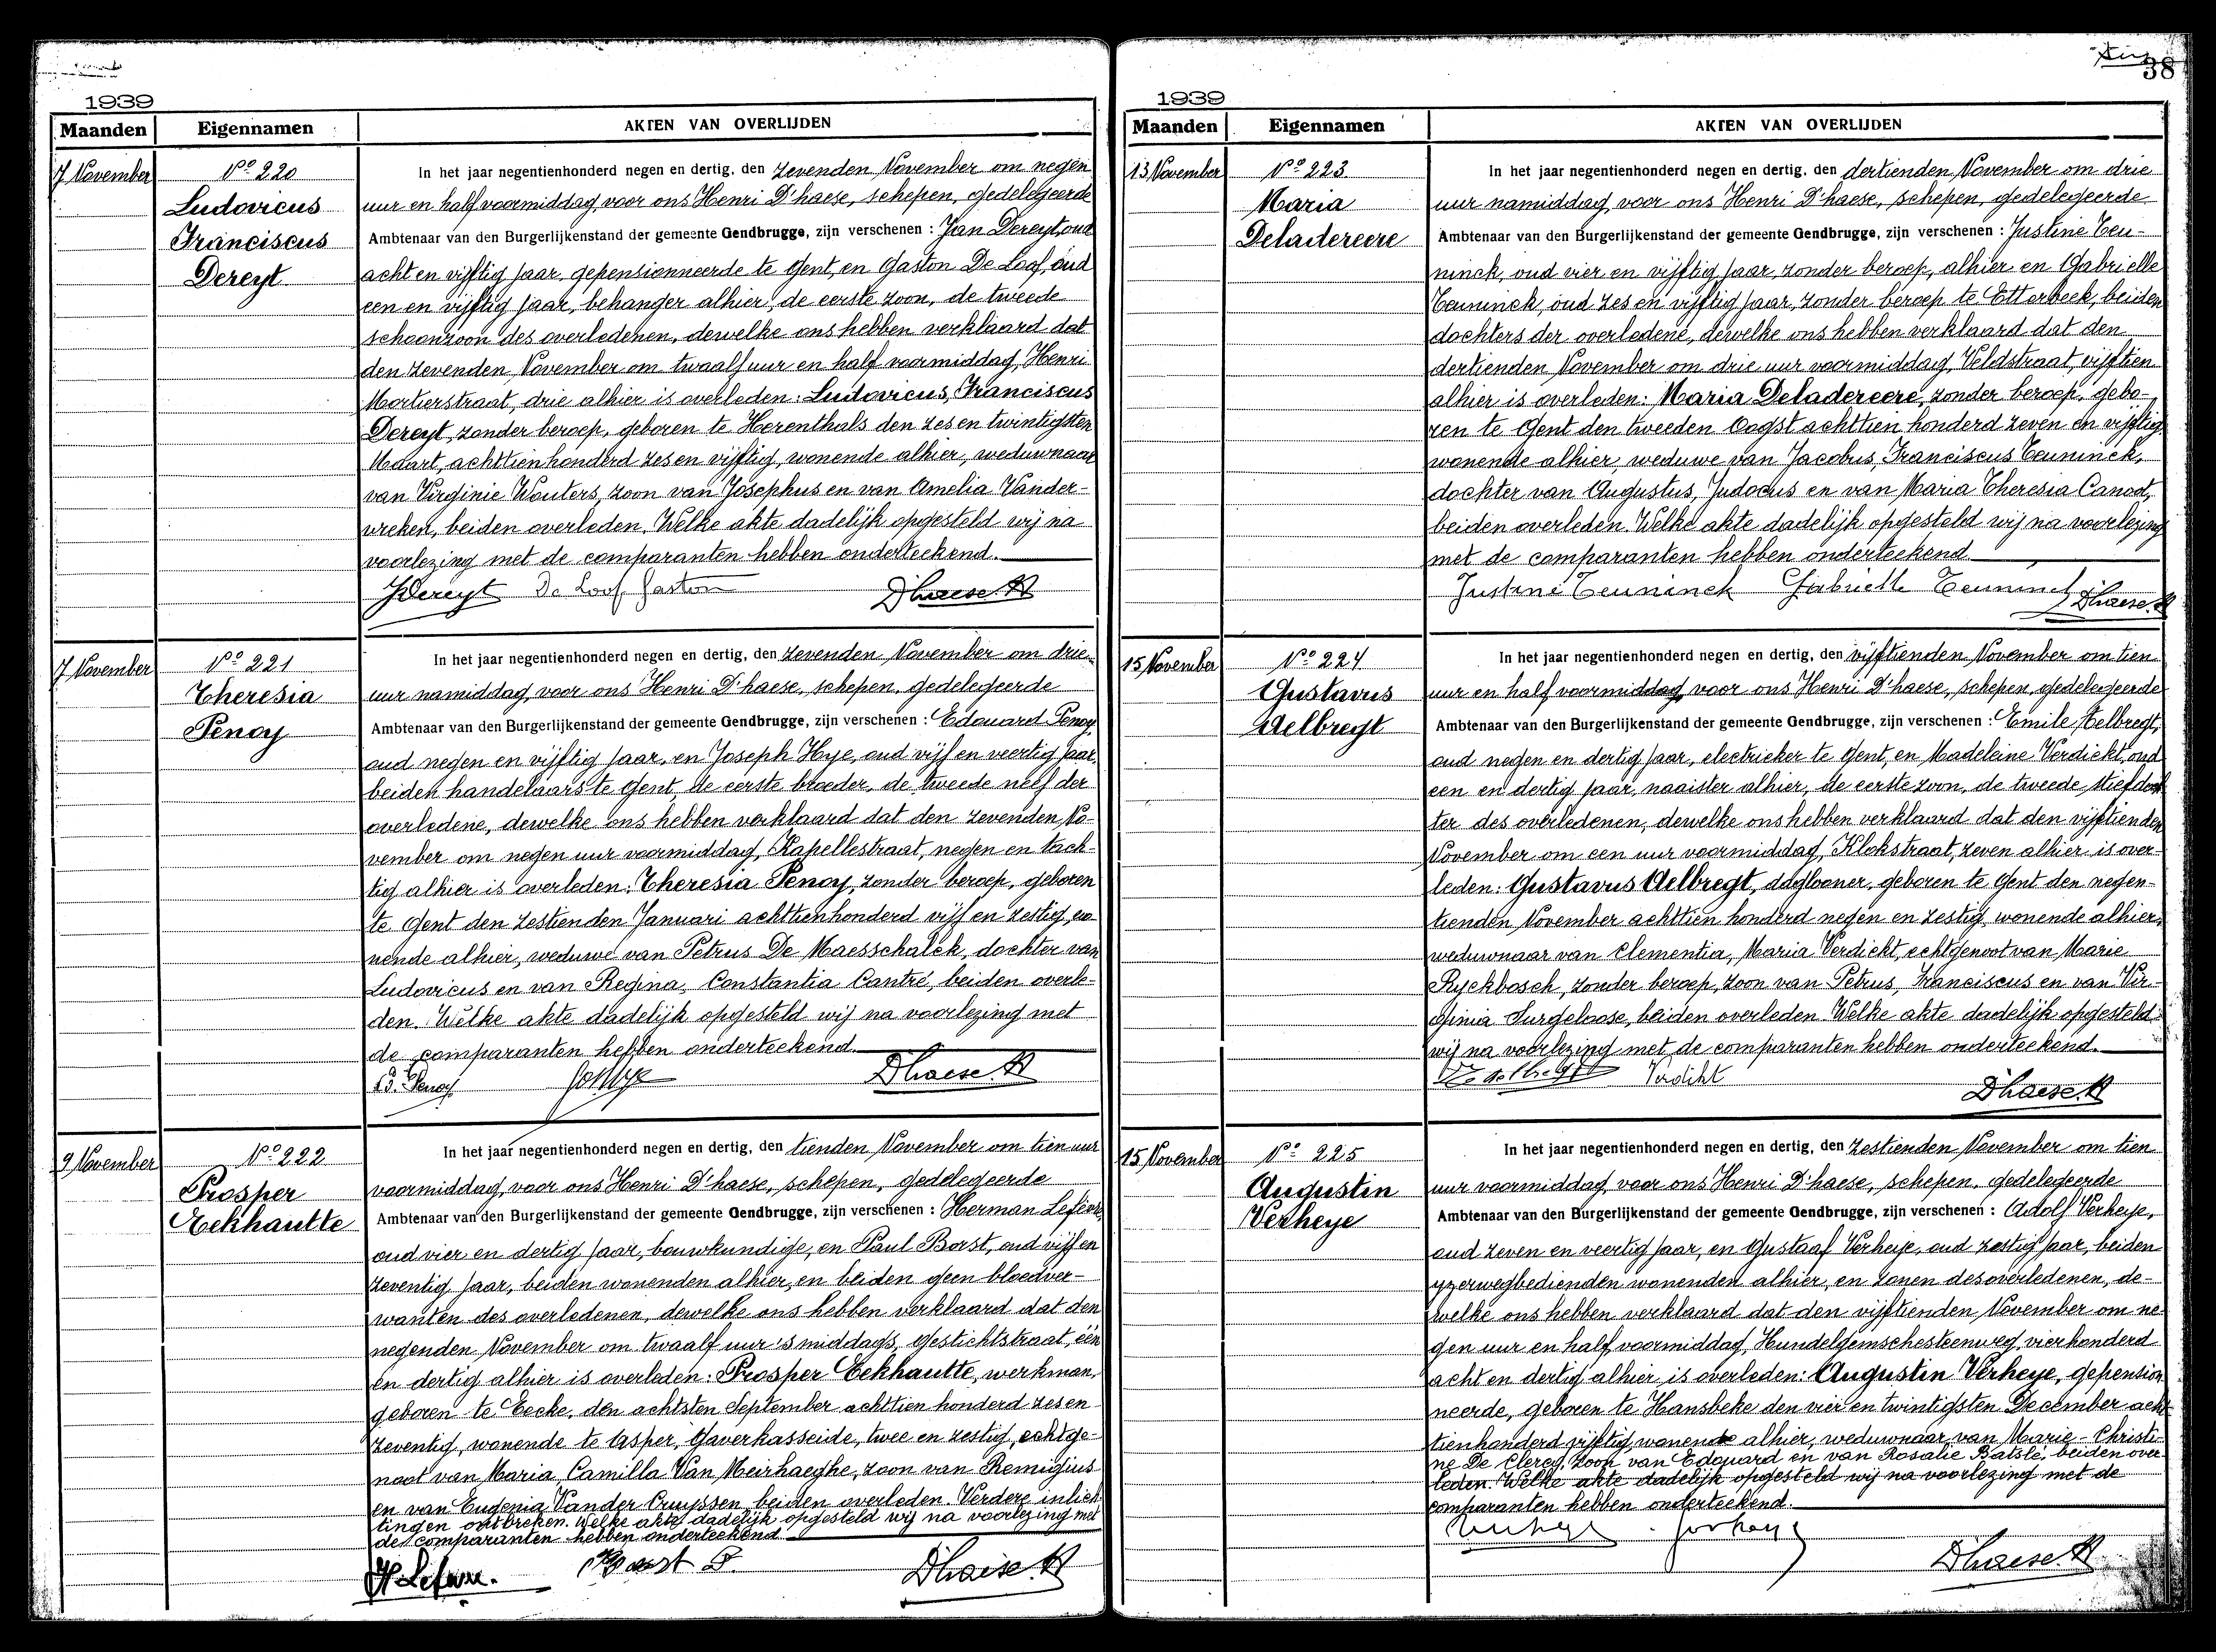 1939
Maanden Eigennamen AKTEN VAN OVERLIJDEN
7 November
Nº 220
Ludovicus
Franciscus
Dereyt
In het jaar negentienhonderd negen en dertig, den zevenden November om negen
uur en half voormiddag, voor ons Henri D'haese, schepen, gedelegeerde
Ambtenaar van den Burgerlijkenstand der gemeente Gendbrugge, zijn verschenen : Jan Dereyt, oud
acht en vijftig jaar, gepensionneerde te Gent, en Gaston De Loof, oud
een en vijftig jaar, behanger alhier, de eerste zoon, de tweede
schoonzoon des overledenen, dewelke ons hebben verklaard dat
den zevenden November om twaalf uur en half voormiddag, Henri
Mortierstraat, drie alhier is overleden: Ludovicus, Franciscus
Dereyt, zonder beroep, geboren te Herenthals den zes en twintigsten
Maart, achttienhonderd zes en vijftig, wonende alhier, weduwnaar
van Virginie Wouters, zoon van Josephus en van Amelia Vander-
vreken, beiden overleden. Welke akte dadelijk opgesteld wij na
voorlezing met de comparanten hebben onderteekend.
JDereyt De Loof Gaston D'haese H
7 November
Nº 221
Theresia
Penoy
In het jaar negentienhonderd negen en dertig, den zevenden November om drie
uur namiddag, voor ons Henri D'haese, schepen, gedelegeerde
Ambtenaar van den Burgerlijkenstand der gemeente Gendbrugge, zijn verschenen : Edouard Penoy,
oud negen en vijftig jaar, en Joseph Hye, oud vijf en veertig jaar,
beiden handelaars te Gent, de eerste broeder, de tweede neef der
overledene, dewelke ons hebben verklaard dat den zevenden No-
vember om negen uur voormiddag, Kapellestraat, negen en tach-
tig alhier is overleden: Theresia Penoy, zonder beroep, geboren
te Gent den zestienden Januari achttienhonderd vijf en zestig, wo-
nende alhier, weduwe van Petrus De Maesschalck, dochter van
Ludovicus en van Regina, Constantia Cantré, beiden overle-
den. Welke akte dadelijk opgesteld wij na voorlezing met
de comparanten hebben onderteekend.
E. Penoy JosHye D'haese H
9 November
Nº 222
Prosper
Eekhautte
In het jaar negentienhonderd negen en dertig, den tienden November om tien uur
voormiddag, voor ons Henri D'haese, schepen, gedelegeerde
Ambtenaar van den Burgerlijkenstand der gemeente Gendbrugge, zijn verschenen : Herman Lefèvre,
oud vier en dertig jaar, bouwkundige, en Paul Borst, oud vijf en
zeventig jaar, beiden wonenden alhier, en beiden geen bloedver-
wanten des overledenen, dewelke ons hebben verklaard dat den
negenden November om twaalf uur 's middags, Gestichtstraat, één
en dertig alhier is overleden: Prosper Eekhautte, werkman,
geboren te Eecke, den achtsten September achttien honderd zes en
zeventig, wonende te Asper, Gaverkasseide, twee en zestig, echtge-
noot van Maria, Camilla Van Meirhaeghe, zoon van Remigius
en van Eugenia Vander Cruyssen, beiden overleden. Verdere inlich-
tingen ontbreken. Welke akte dadelijk opgesteld wij na voorlezing met
de comparanten hebben onderteekend
H Lefèvre. Borst P. D'haese H
38
1939
Maanden Eigennamen AKTEN VAN OVERLIJDEN
13 November
Nº 223
Maria
Deladereere
In het jaar negentienhonderd negen en dertig, den dertienden November om drie
uur namiddag, voor ons Henri D'haese, schepen, gedelegeerde
Ambtenaar van den Burgerlijkenstand der gemeente Gendbrugge, zijn verschenen : Justine Teu-
ninck, oud vier en vijftig jaar, zonder beroep, alhier en Gabrielle
Teuninck, oud zes en vijftig jaar, zonder beroep te Etterbeek, beiden
dochters der overledene, dewelke ons hebben verklaard dat den
dertienden November om drie uur voormiddag, Veldstraat, vijftien
alhier is overleden: Maria Deladereere, zonder beroep, gebo-
ren te Gent den tweeden Oogst achttien honderd zeven en vijftig,
wonende alhier, weduwe van Jacobus, Franciscus Teuninck,
dochter van Augustus, Judocus en van Maria Theresia Canoot,
beiden overleden. Welke akte dadelijk opgesteld wij na voorlezing
met de comparanten hebben onderteekend
Justine Teuninck Gabrielle Teuninck D'haese H
15 November
Nº 224
Gustavus
Aelbregt
In het jaar negentienhonderd negen en dertig, den vijftienden November om tien
uur en half voormiddag, voor ons Henri D'haese, schepen, gedelegeerde
Ambtenaar van den Burgerlijkenstand der gemeente Gendbrugge, zijn verschenen : Emile Aelbregt,
oud negen en dertig jaar, electrieker te Gent, en Madeleine Verdickt, oud
een en dertig jaar, naaister alhier, de eerste zoon, de tweede stiefdoch
ter des overledenen, dewelke ons hebben verklaard dat den vijftienden
November om een uur voormiddag, Klokstraat, zeven alhier is over-
leden: Gustavus Aelbregt, daglooner, geboren te Gent den negen-
tienden November achttien honderd negen en zestig, wonende alhier,
weduwnaar van Clementia, Maria Verdickt, echtgenoot van Marie
Ryckbosch, zonder beroep, zoon van Petrus, Franciscus en van Vir-
ginia Surgeloose, beiden overleden. Welke akte dadelijk opgesteld
wij na voorlezing met de comparanten hebben onderteekend.
Verdikt D'haese H
15 November
Nº 225
Augustin
Verheye
In het jaar negentienhonderd negen en dertig, den zestienden November om tien
uur voormiddag, voor ons Henri D'haese, schepen, gedelegeerde
Ambtenaar van den Burgerlijkenstand der gemeente Gendbrugge, zijn verschenen : Adolf Verheye,
oud zeven en veertig jaar, en Gustaaf Verheye, oud zestig jaar, beiden
yzerwegbedienden wonenden alhier, en zonen des overledenen, de-
welke ons hebben verklaard dat den vijftienden November om ne-
gen uur en half voormiddag, Hundelgemschesteenweg, vierhonderd
acht en dertig alhier, is overleden: Augustin Verheye, gepension-
neerde, geboren te Hansbeke den vier en twintigsten December acht-
tienhonderd vijftig, wonende alhier, weduwnaar van Marie-Christi-
ne De Clercq, zoon van Edouard en van Rosalie Batslé, beiden over-
leden. Welke akte dadelijk opgesteld wij na voorlezing met de
comparanten hebben onderteekend.
D'haese H